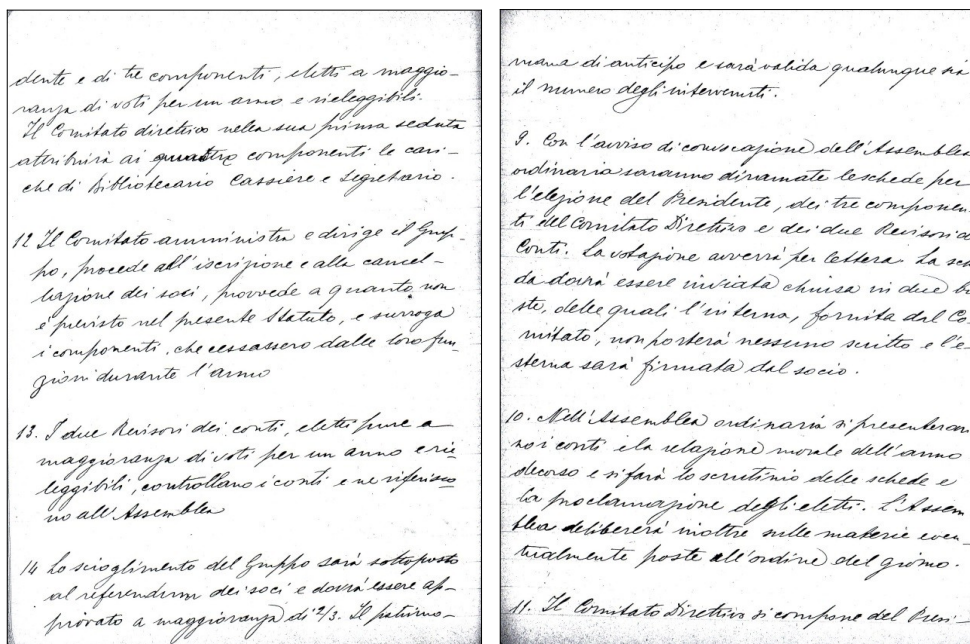 dente e di tre componenti, eletti a maggio-
ranza di voti per un anno e rieleggibili.
Il Comitato direttivo nella sua prima seduta
attribuirà ai quattro componenti le cari-
che di Bibliotecario Cassiere e Segretario.
12 Il Comitato amministra e dirige il Grup-
po, procede all'iscrizione e alla cancel-
lazione dei soci, provvede a quanto non
è previsto nel presente Statuto, e surroga
i componenti, che cessassero dalle loro fun-
zioni durante l'anno
13. I due Revisori dei conti, eletti pure a
maggioranza di voti per un anno e rie-
leggibili, controllano i conti e ne riferisco
no all'Assemblea
14 Lo scioglimento del Gruppo sarà sottoposto
al referendum dei soci e dovrà essere ap-
provato a maggioranza di 2/3. Il patrimo-
mana di anticipo e sarà valida qualunque sia
il numero degli intervenuti.
9. Con l'avviso di convocazione dell'Assemblea
ordinaria saranno diramate le schede per
l'elezione del Presidente, dei tre componen
ti del Comitato Direttivo e dei due Revisori d
Conti. La votazione avverrà per lettera. La sch
da dovrà essere inviata chiusa in due bu
ste, delle quali l'interna, fornita dal Co-
mitato, non porterà nessuno scritto e l'e-
sterna sarà firmata dal socio.
10. Nell'Assemblea ordinaria si presenteran
no i conti e la relazione morale dell'anno
decorso e si farà lo scrutinio delle schede e
la proclamazione degli eletti. L'Assem
blea delibererà inoltre sulle materie even-
tualmente poste all'ordine del giorno.
11. Il Comitato Direttivo si compone del Presi-